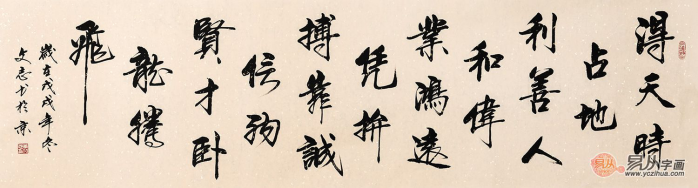 得天時
占地
利善人
和偉
業鴻遠
凭拚
搏靠誠
信殉
賢才卧
龍騰
飛
歲在戊戌年冬
文志书於京
易从
易从字画
www.yczihua.com